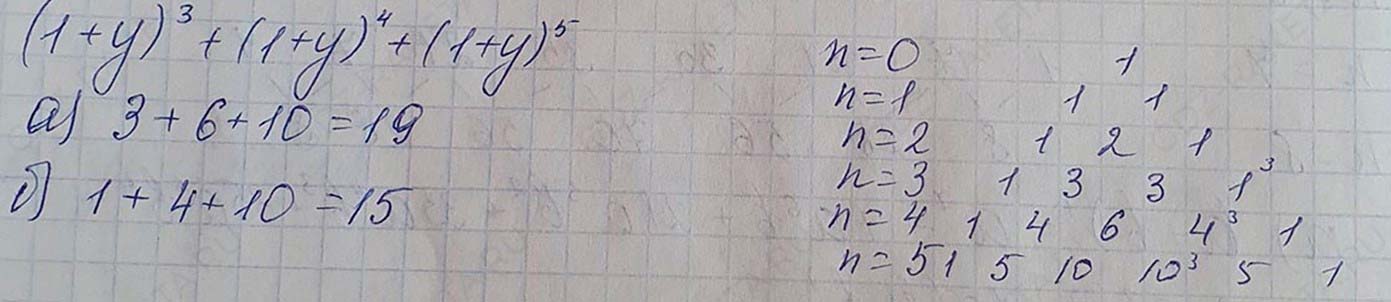 (1+y)³+(1+y)⁴+(1+y)⁵
а) 3+6+10=19
б) 1+4+10=15
n=0 1
n=1 1 1
n=2 1 2 1
n=3 1 3 3 1³
n=4 1 4 6 4³ 1
n=5 1 5 10 10³ 5 1